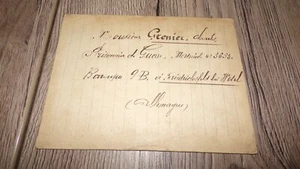 Monsieur Grenier, Claude
Prisonnier de Guerre, Matricule n: 3653
Baraque 9B, à Friedrichsfeld bei Wesel
(Allemagne)